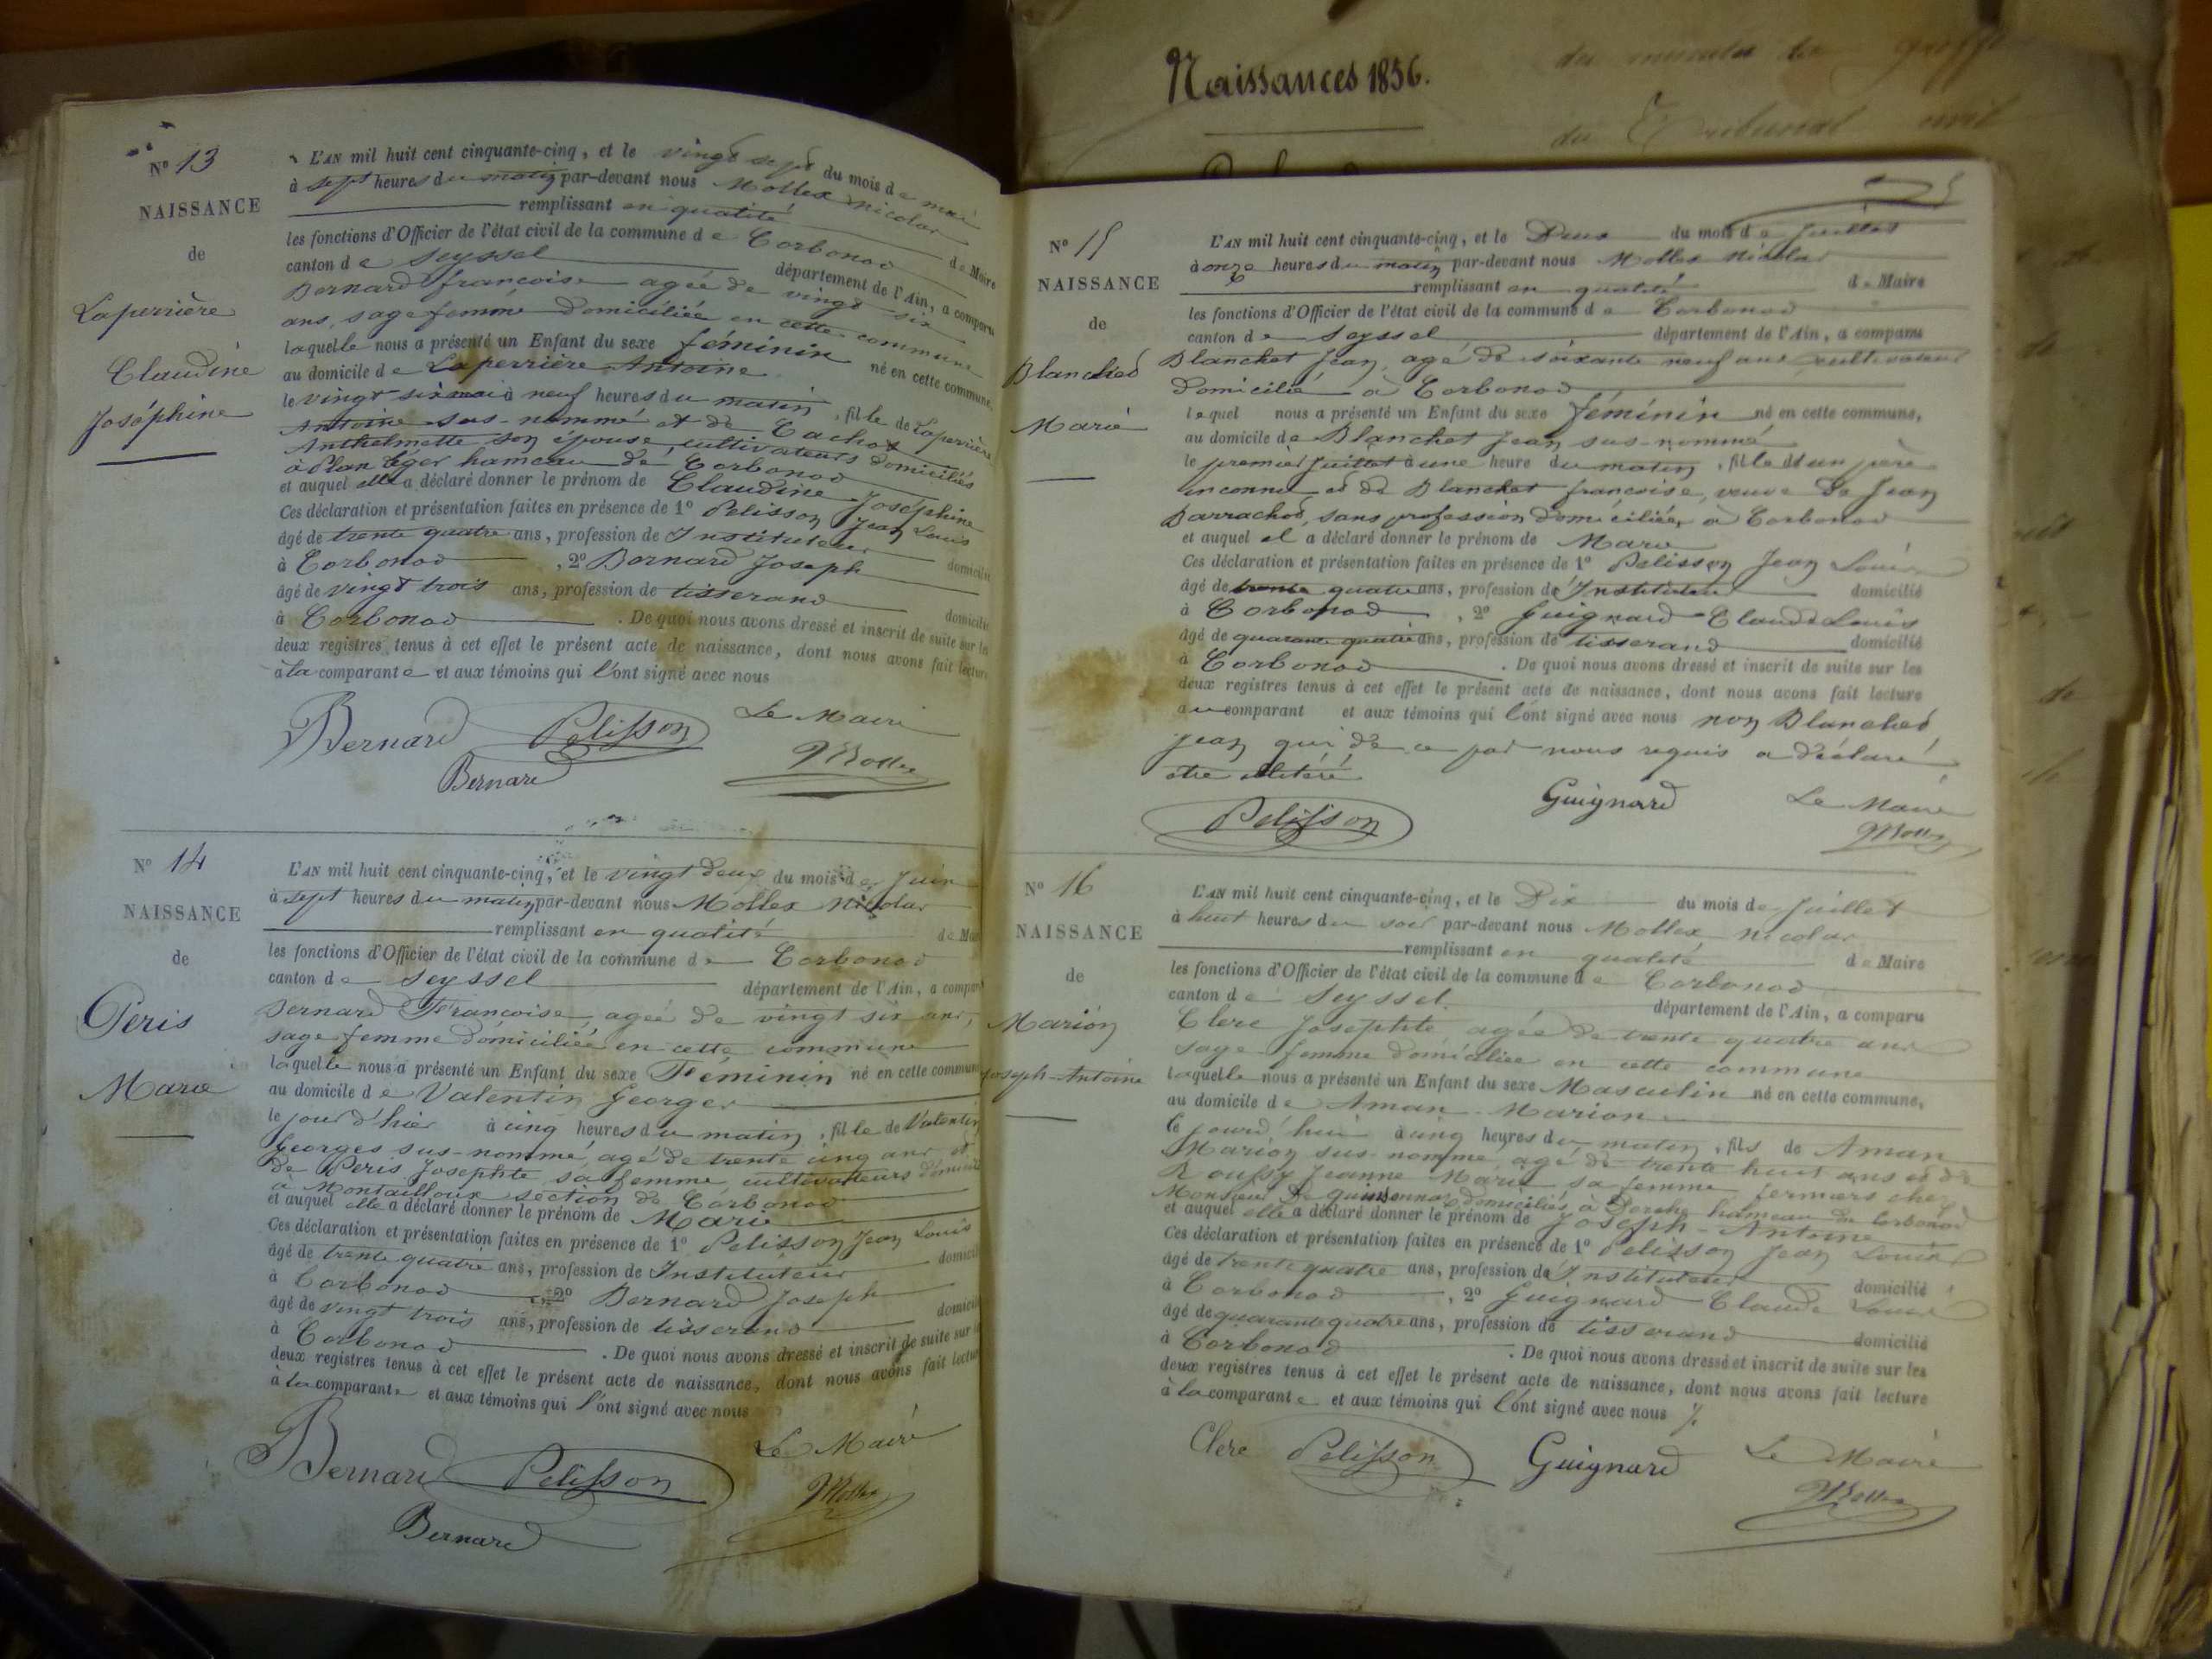 Naissances 1856.
du Tribunal civil
Nº 13
NAISSANCE
de
Laperrière
Claudine
Joséphine
L'AN mil huit cent cinquante-cinq, et le vingt sept du mois de mai
à sept heures du matin par-devant nous Mollex Nicolas
remplissant en qualité de Maire
les fonctions d'Officier de l'état civil de la commune de Corbonod
canton de Seyssel département de l'Ain, a comparu
Bernard françoise agée de vingt six
ans, sage femme domiciliée en cette commune
laquelle nous a présenté un Enfant du sexe féminin né en cette commune,
au domicile de Laperrière Antoine
le vingt six mai à neuf heures du matin, fille de Laperrière
Antoine sus-nommé et de Cachot
Anthelmette son épouse, cultivateurs domiciliés
à Plan Léger hameau de Corbonod
et auquel elle a déclaré donner le prénom de Claudine Joséphine
Ces déclaration et présentation faites en présence de 1º Pelisson Jean Louis
âgé de trente quatre ans, profession de Instituteur domicilié
à Corbonod, 2º Bernard Joseph
âgé de vingt trois ans, profession de tisserand domicilié
à Corbonod. De quoi nous avons dressé et inscrit de suite sur les
deux registres tenus à cet effet le présent acte de naissance, dont nous avons fait lecture
à la comparante et aux témoins qui l'ont signé avec nous
Le Maire
Bernard Pelisson Mollex
Bernard
Nº 14
NAISSANCE
de
Péris
Marie
L'AN mil huit cent cinquante-cinq, et le vingt deux du mois de Juin
à sept heures du matin par-devant nous Mollex Nicolas
remplissant en qualité de Maire
les fonctions d'Officier de l'état civil de la commune de Corbonod
canton de Seyssel département de l'Ain, a comparu
Bernard Françoise, agée de vingt six ans,
sage femme domiciliée en cette commune
laquelle nous a présenté un Enfant du sexe Féminin né en cette commune
au domicile de Valentin Georges
le jour d'hier à cinq heures du matin, fille de Valentin
Georges sus-nommé, agé de trente cinq ans et
de Peris Josephte sa femme, cultivateurs domiciliés
à Montailloux section de Corbonod
et auquel elle a déclaré donner le prénom de Marie
Ces déclaration et présentation faites en présence de 1º Pelisson Jean Louis
âgé de trente quatre ans, profession de Instituteur domicilié
à Corbonod 2º Bernard Joseph
âgé de vingt trois ans, profession de tisserand domicilié
à Corbonod. De quoi nous avons dressé et inscrit de suite sur les
deux registres tenus à cet effet le présent acte de naissance, dont nous avons fait lecture
à la comparante et aux témoins qui l'ont signé avec nous
Le Maire
Bernard Pelisson Mollex
Bernard
5
Nº 15
NAISSANCE
de
Blanchet
Marie
L'AN mil huit cent cinquante-cinq, et le Deux du mois de Juillet
à onze heures du matin par-devant nous Mollex Nicolas
remplissant en qualité de Maire
les fonctions d'Officier de l'état civil de la commune de Corbonod
canton de Seyssel département de l'Ain, a comparu
Blanchet Jean, agé de soixante neuf ans, cultivateur
domicilié à Corbonod
lequel nous a présenté un Enfant du sexe féminin né en cette commune,
au domicile de Blanchet Jean sus-nommé
le premier Juillet à une heure du matin, fille d'un père
inconnu et de Blanchet françoise, veuve de Jean
Barrachod, sans profession domiciliée à Corbonod
et auquel il a déclaré donner le prénom de Marie
Ces déclaration et présentation faites en présence de 1º Pelisson Jean Louis
âgé de trente quatre ans, profession de Instituteur domicilié
à Corbonod, 2º Guignard Claude Louis
âgé de quarante quatre ans, profession de tisserand domicilié
à Corbonod. De quoi nous avons dressé et inscrit de suite sur les
deux registres tenus à cet effet le présent acte de naissance, dont nous avons fait lecture
au comparant et aux témoins qui l'ont signé avec nous non Blanchet
Jean qui de ce par nous requis a déclaré
être illitéré
Pelisson Guignard Le Maire
Mollex
Nº 16
NAISSANCE
de
Marion
Joseph-Antoine
L'AN mil huit cent cinquante-cinq, et le Dix du mois de Juillet
à huit heures du soir par-devant nous Mollex Nicolas
remplissant en qualité de Maire
les fonctions d'Officier de l'état civil de la commune de Corbonod
canton de Seyssel département de l'Ain, a comparu
Clerc Josephte agée de trente quatre ans
sage femme domiciliée en cette commune
laquelle nous a présenté un Enfant du sexe Masculin né en cette commune,
au domicile de Aman Marion
le jourd'hui à cinq heures du matin, fils de Aman
Marion sus-nommé agé de trente huit ans et de
Roussy Jeanne Marie sa femme fermiers chez
Monsieur De domiciliés à hameau de Corbonod
et auquel elle a déclaré donner le prénom de Joseph-Antoine
Ces déclaration et présentation faites en présence de 1º Pelisson Jean Louis
âgé de trente quatre ans, profession de Instituteur domicilié
à Corbonod, 2º Guignard Claude Louis
âgé de quarante quatre ans, profession de tisserand domicilié
à Corbonod. De quoi nous avons dressé et inscrit de suite sur les
deux registres tenus à cet effet le présent acte de naissance, dont nous avons fait lecture
à la comparante et aux témoins qui l'ont signé avec nous
Clerc Pelisson Guignard Le Maire
Mollex